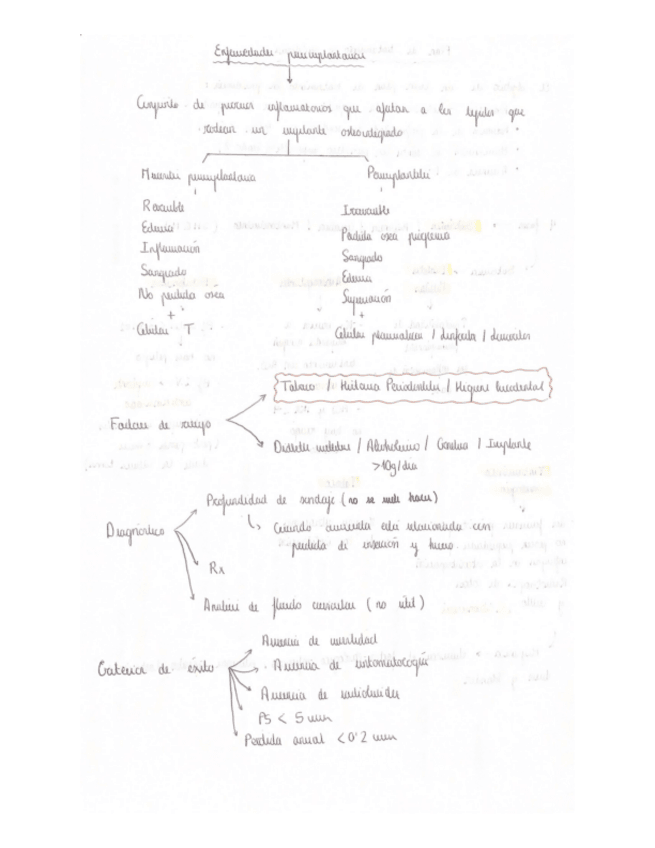 Enfermedades periimplantarias
Conjunto de procesos inflamatorios que afectan a los tejidos que
rodean un implante osteointegrado
Mucositis periimplantaria
Periimplantitis
Reversible
Irreversible
Edema
Perdida osea progresiva
Inflamación
Sangrado
Sangrado
Edema
No perdida osea
Supuración
+
+
Células T
Células plasmaticas /
Tabaco / Historia Periodontitis / Higiene bucodental
Factores de riesgo
Diabetes mellitus / Alcoholismo / Genetica / Implante
>10g/dia
Profundidad de sondaje (no se suele hacer)
Diagnóstico
Cuando aumenta esta relacionada con
perdida de inserción y hueso
Rx
Analisis de fluido crevicular (no util)
Ausencia de movilidad
Criterios de éxito
Ausencia de sintomatología
Ausencia de radiolucidez
PS < 5 mm
Perdida anual < 0'2 mm